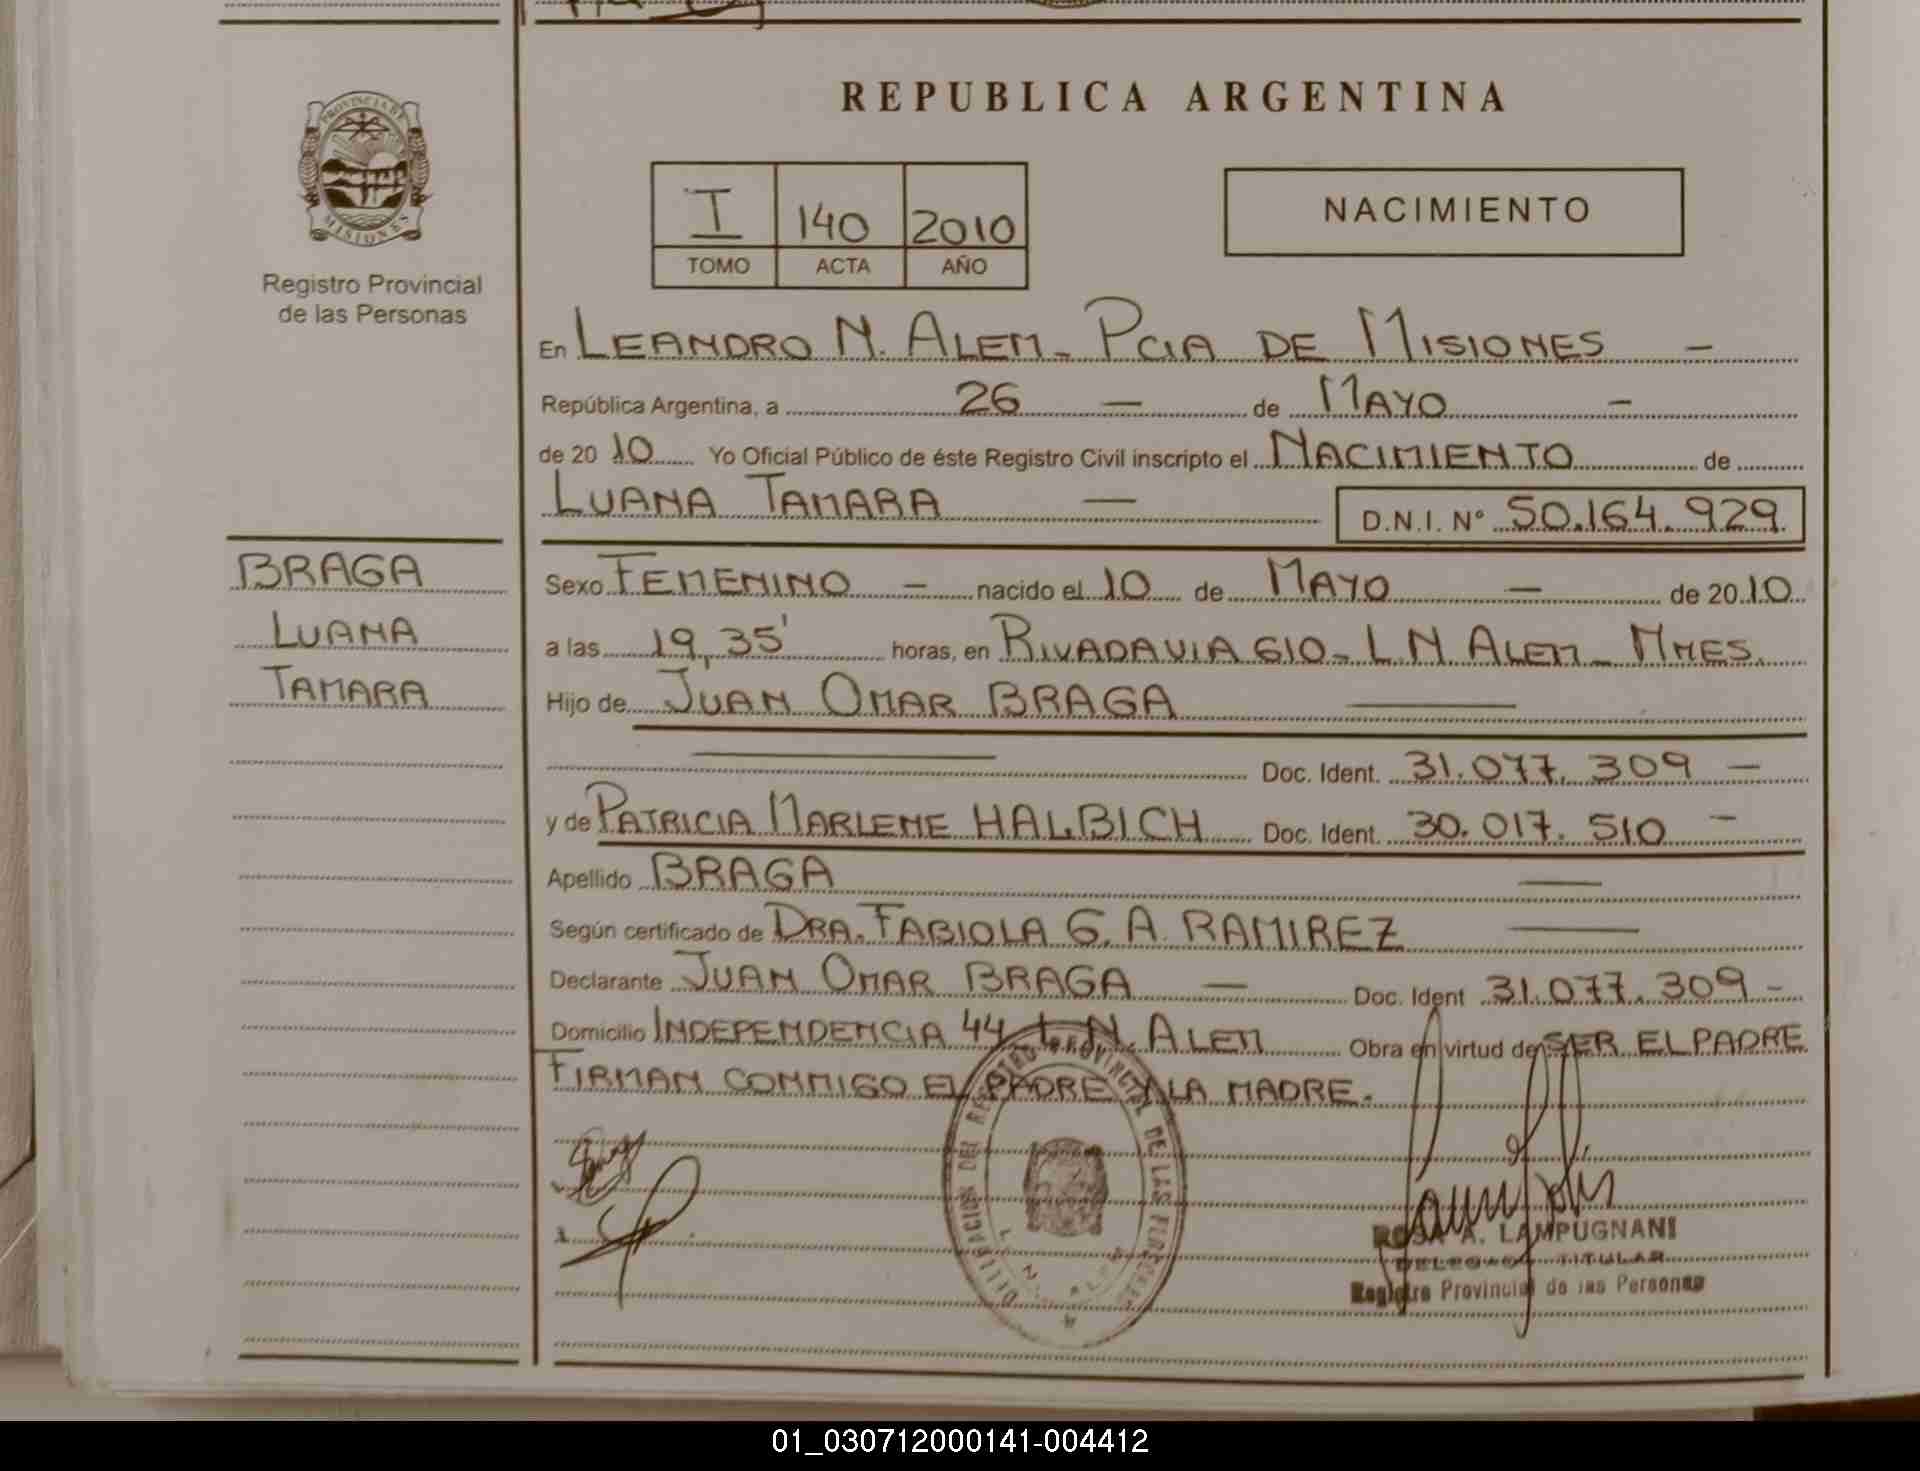 PROVINCIA DE
MISIONES
Registro Provincial
de las Personas
BRAGA
LUANA
TAMARA
REPUBLICA ARGENTINA
I 140 2010
TOMO ACTA AÑO
NACIMIENTO
En LEANDRO N. ALEM - PCIA DE MISIONES -
República Argentina, a 26 - de MAYO -
de 2010 Yo Oficial Público de éste Registro Civil inscripto el NACIMIENTO de
LUANA TAMARA — D.N.I. Nº 50.164.929
Sexo FEMENINO - nacido el 10 de MAYO - de 2010
a las 19,35' horas, en RIVADAVIA 610 - L N ALEM - MNES.
Hijo de JUAN OMAR BRAGA —
— Doc. Ident. 31.077.309 -
y de PATRICIA MARLENE HALBICH Doc. Ident. 30.017.510 -
Apellido BRAGA —
Según certificado de DRA. FABIOLA G. A. RAMIREZ —
Declarante JUAN OMAR BRAGA — Doc. Ident 31.077.309 -
Domicilio INDEPENDENCIA 44 L. N. ALEM Obra en virtud de SER EL PADRE
FIRMAN CONMIGO EL PADRE Y LA MADRE.
DELEGACION DEL REGISTRO PROVINCIAL DE LAS PERSONAS
L. N. ALEM
ROSA A. LAMPUGNANI
DELEGADA TITULAR
Registro Provincial de las Personas
01_030712000141-004412